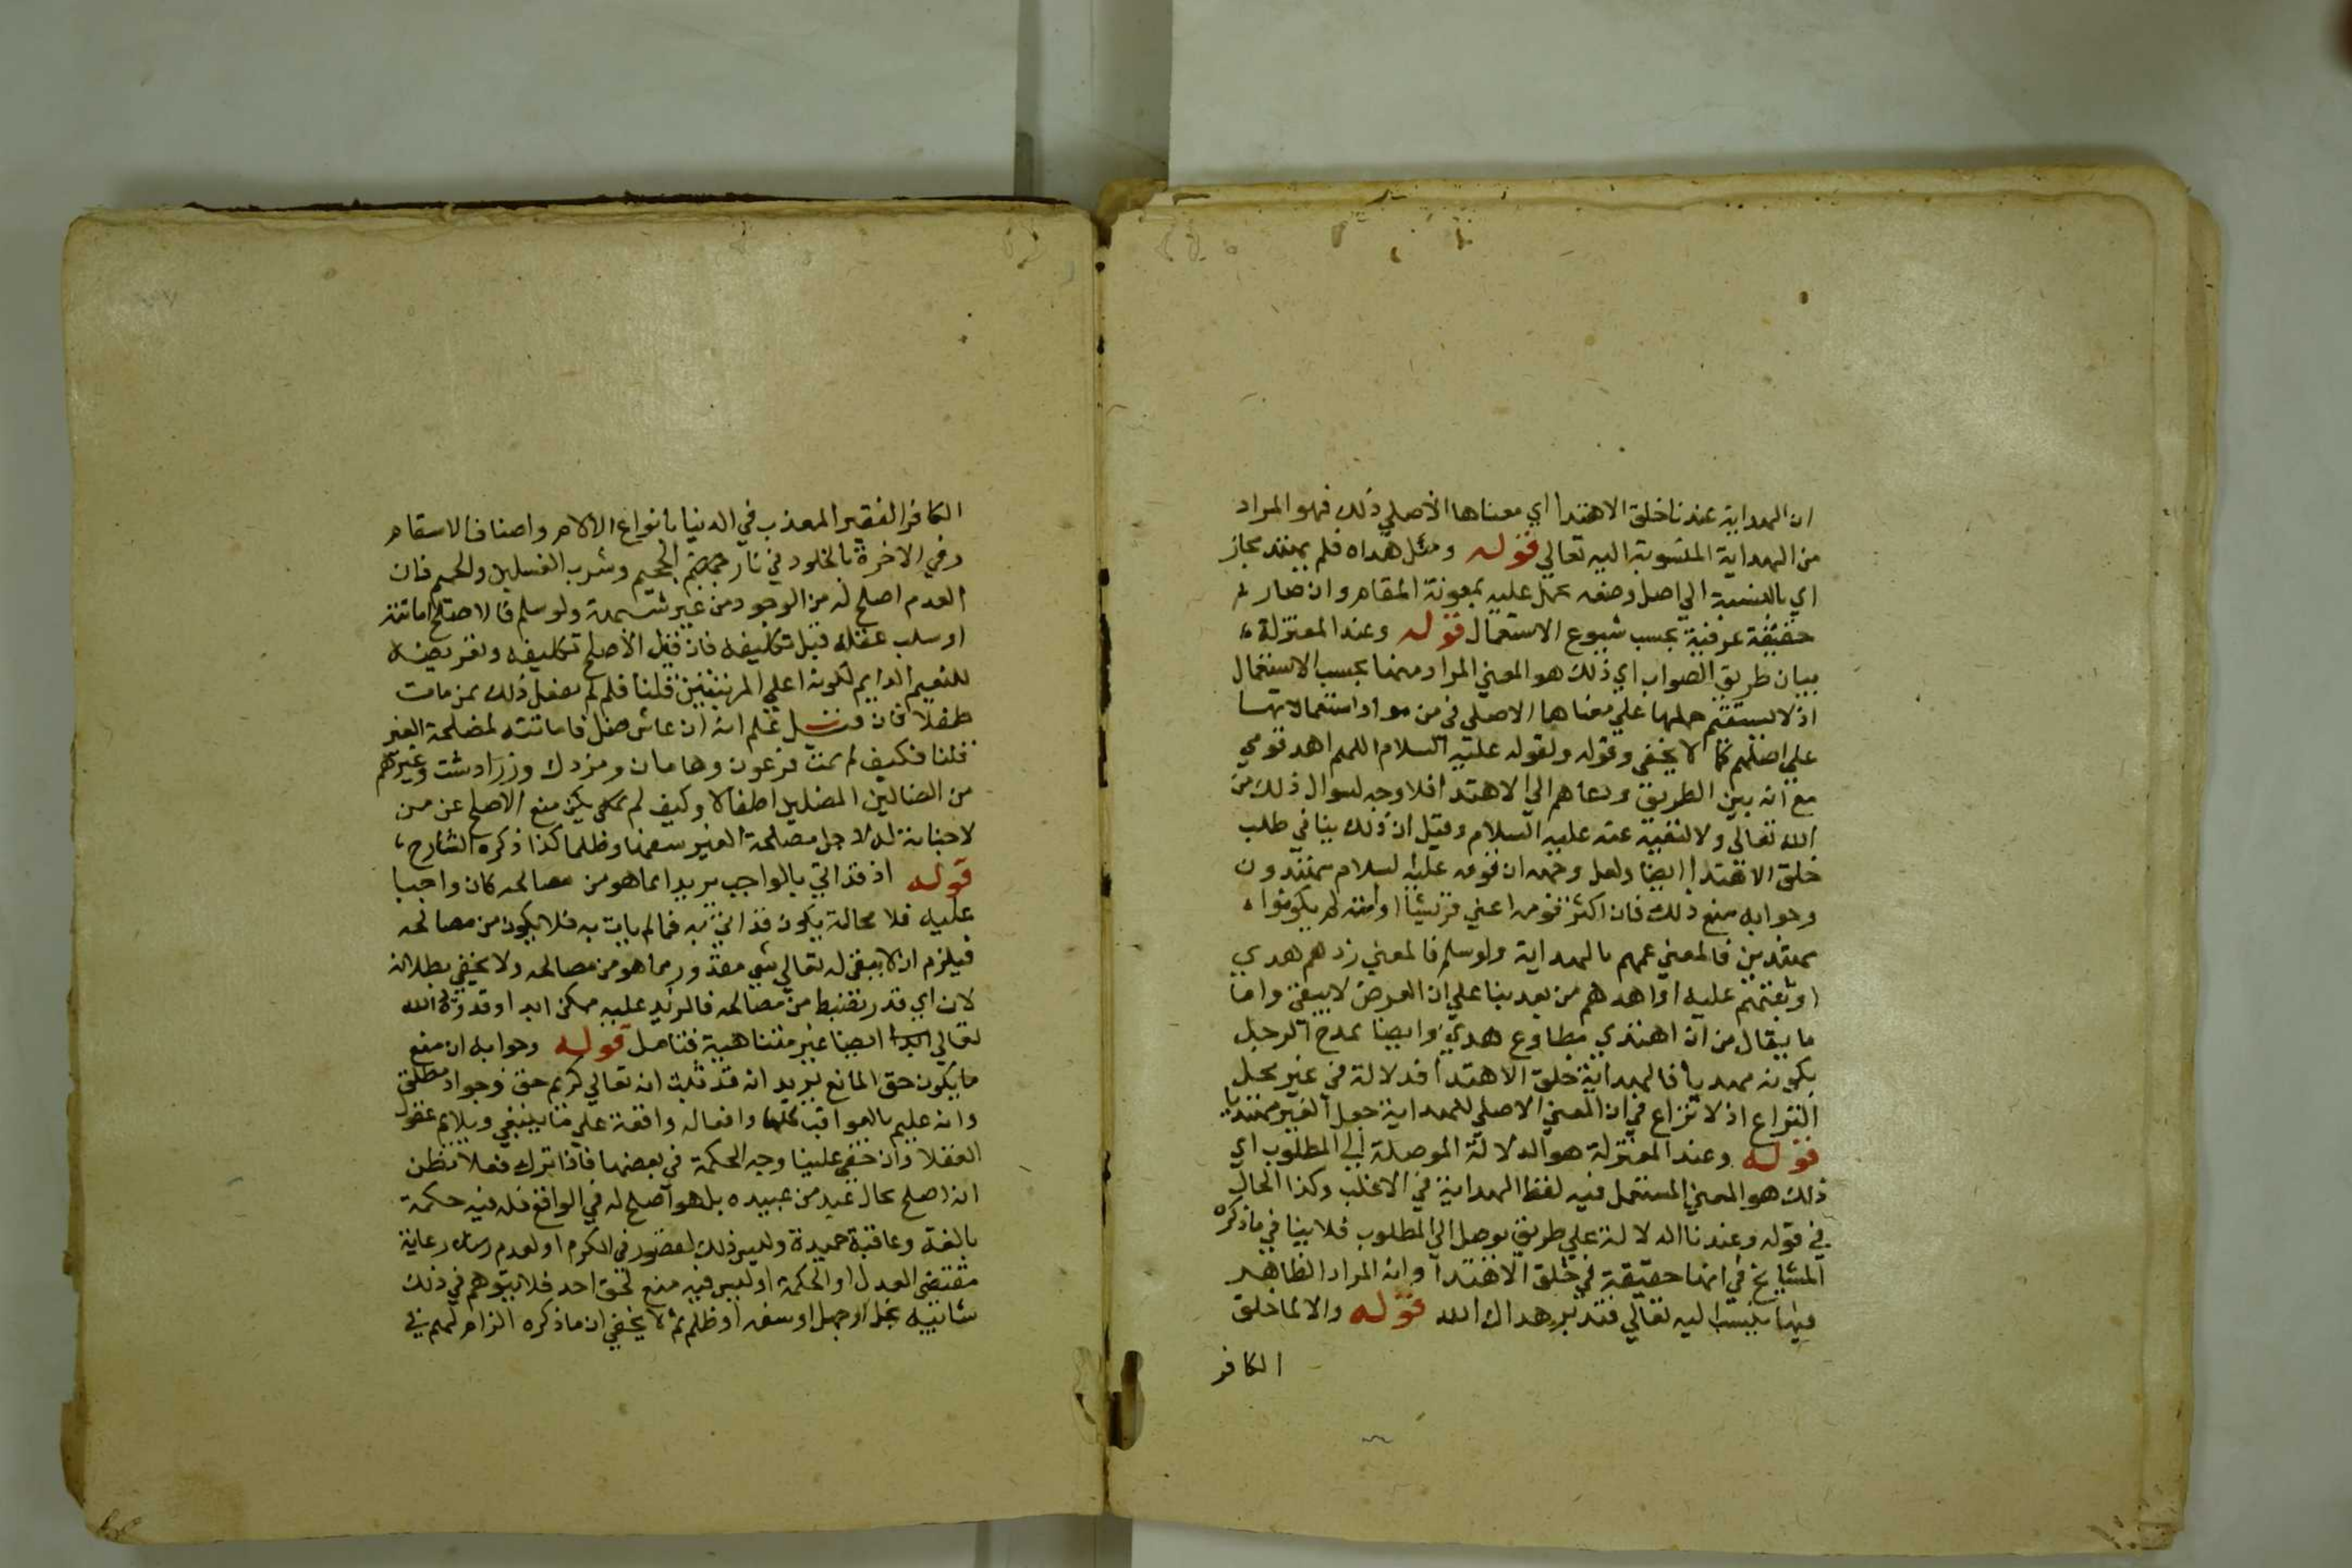 ان الهداية عندنا خلق الاهتدا اي معناها الأصلي ذلك فهو المراد
من الهداية المنسوبة اليه تعالي قوله ومثل هداه فلم يهتد مجاز
اي بالنسبة الي اصل وضعه يحمل عليه بمعونة المقام وان صار لم
حقيقة عرفية بحسب شيوع الاستعمال قوله وعند المعتزلة
بيان طريق الصواب اي ذلك هو المعني المراد منها بحسب الاستعمال
اذ لا يستقيم حملها علي معناها الاصلي في من مواد استعمالاتها
علي اصلهم كما لا يخفي وقوله ولقوله عليه السلام اللهم اهد قومي
مع انه بين الطريق ودعاهم الي الاهتدا فلا وجه لسوال ذلك من
الله تعالي ولا لنفيه عنه عليه السلام وقيل ان ذلك ينافي طلب
خلق الاهتدا ايضا ولعل وجهه ان قومه عليه السلام مهتدون
وجوابه منع ذلك فان اكثر قومه اعني قريشا او امته لم يكونوا
مهتدين فالمعني عمهم بالهداية ولو سلم فالمعني زدهم هدي
او ثبتهم عليه او اهدهم من بعد بنا علي ان العرض لا يبقي واما
ما يقال من ان اهتدي مطاوع هدي وايضا يمدح الرجل
بكونه مهديا فالهداية خلق الاهتدا فدلالة في غير محل
النزاع اذ لا نزاع في ان المعني الاصلي للهداية جعل الغير مهتديا
قوله وعند المعتزلة هو الدلالة الموصلة الي المطلوب اي
ذلك هو المعني المستعمل فيه لفظ الهداية في الاغلب وكذا الحال
في قوله وعندنا الدلالة علي طريق يوصل الي المطلوب فلا ينافي ما ذكره
المشايخ في انها حقيقة في خلق الاهتدا وانه المراد الظاهر
فيما ينسب اليه تعالي فتدبر هداك الله قوله والا لما خلق
الكافر
الكافر الفقير المعذب في الدنيا بانواع الالام واصناف الاسقام
وفي الاخرة بالخلود في نار جهنم الجحيم وشرب الغسلين والحميم فان
العدم اصلح له من الوجود من غير شبهة ولو سلم فالاصلح اماتته
او سلب عقله قبل تكليفه فان قيل الأصلح تكليفه وتعريضه
للنعيم الدايم لكونه اعلي المرتبتين قلنا فلم لم يفعل ذلك بمن مات
طفلا فان قيل علم انه ان عاش ضل فاماتته لمصلحة الغير
قلنا فكيف لم يمت فرعون وهامان ومزدك وزرادشت وغيرهم
من الضالين المضلين اطفالا وكيف لم يكن منع الاصلح عن من
لا جناية له لاجل مصلحة الغير سفها وظلما كذا ذكره الشارح
قوله اذ قد اتي بالواجب يريد انما هو من مصالحه كان واجبا
عليه فلا محالة يكون قد اتي به فما لم يات به فلا يكون من مصالحه
فيلزم ان لا يبقي له تعالي شي مقدور مما هو من مصالحه ولا يخفي بطلانه
لان اي قدر تضبط من مصالحه فالمزيد عليه ممكن ابدا وقدرة الله
تعالي ايضا غير متناهية فتامل قوله وجوابه ان منع
ما يكون حق المانع يريد انه قد ثبت انه تعالي كريم حق وجواد مطلق
وانه عليم بالعواقب كلها وافعاله واقعة علي ما ينبغي ويلايم عقول
العقلا وان خفي علينا وجه الحكمة في بعضها فاذا ترك فعلا نظن
انه اصلح بحال عبد من عبيده بل هو اصلح له في الواقع فله فيه حكمة
بالغة وعاقبة حميدة وليس ذلك لقصور في الكرم او لعدم رعاية
مقتضي العدل او الحكمة او ليس فيه منع لحق احد فلا يتوهم في ذلك
شائبة بخل او جهل او سفه او ظلم ثم لا يخفي ان ما ذكره الزام لهم في